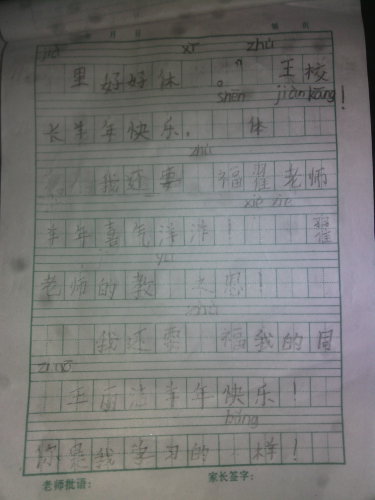 月 日
jiā xī zhù
里好好休 。" 王校
shēn jiàn kāng
长羊年快乐。 体 !
zhù
我还要 福翟老师
xiè xie
羊年喜气洋洋! 翟
yù
老师的教 之恩!
zhù
我还要 福我的同
zhuō
王丽洁羊年快乐!
bǎng
你是我学习的 样!
老师批语: 家长签字: